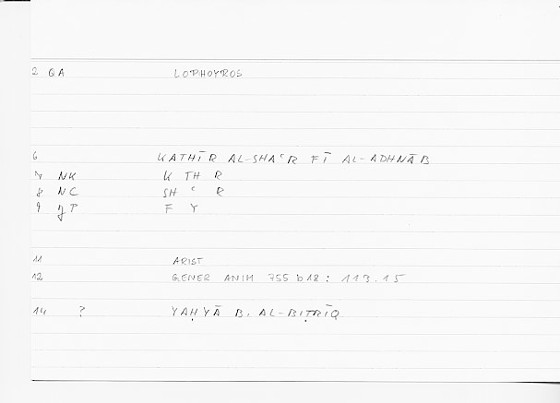 2 QA LOPHOYROS
6 KATHĪR AL-SHAʿR FĪ AL-ADHNĀB
7 NK K TH R
8 NC SH ʿ R
9 yT F Y
11 ARIST
12 GENER ANIM 755 b18: 119.15
14 ? YAḤYĀ B. AL-BIṬRĪQ